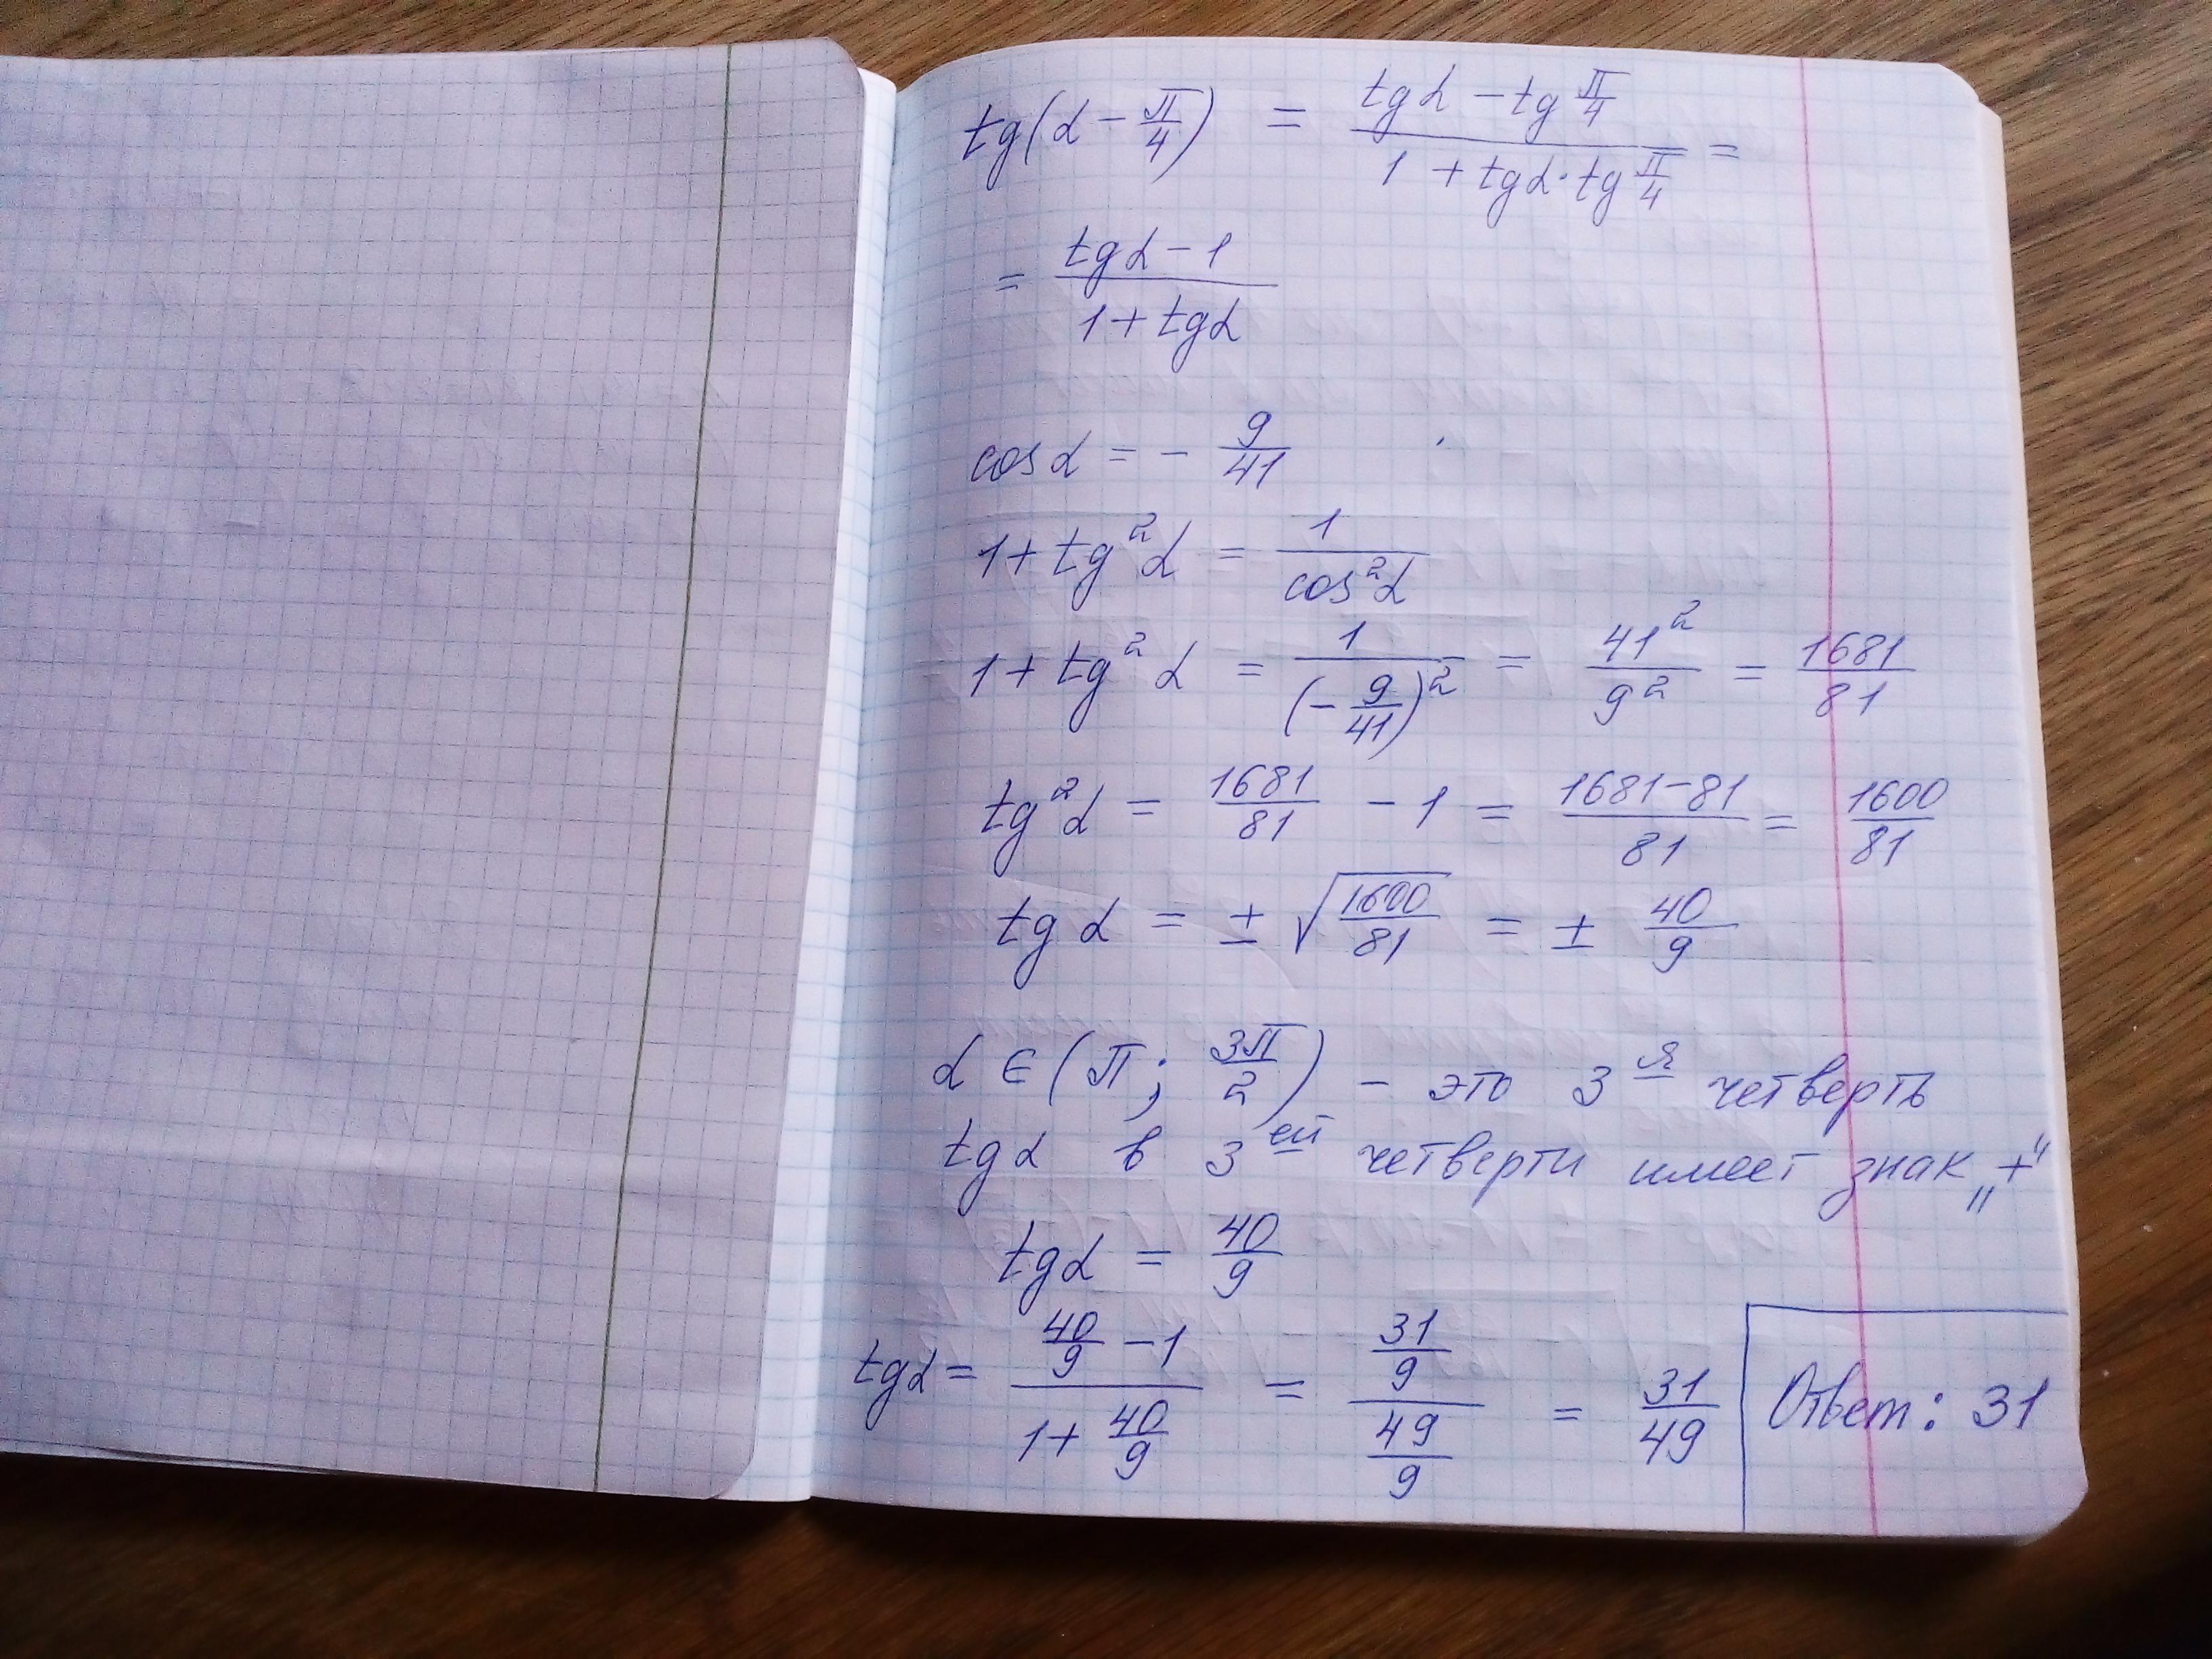 tg(α - π/4) = (tgα - tg π/4)/(1 + tgα · tg π/4) =
= (tgα - 1)/(1 + tgα)
cosα = - 9/41
1 + tg²α = 1/cos²α
1 + tg²α = 1/(- 9/41)² = 41²/9² = 1681/81
tg²α = 1681/81 - 1 = (1681-81)/81 = 1600/81
tg α = ± √(1600/81) = ± 40/9
α ∈ (π; 3π/2) - это 3я четверть
tgα в 3ей четверти имеет знак „+“
tgα = 40/9
tgα = (40/9 - 1)/(1 + 40/9) = (31/9)/(49/9) = 31/49
Ответ: 31